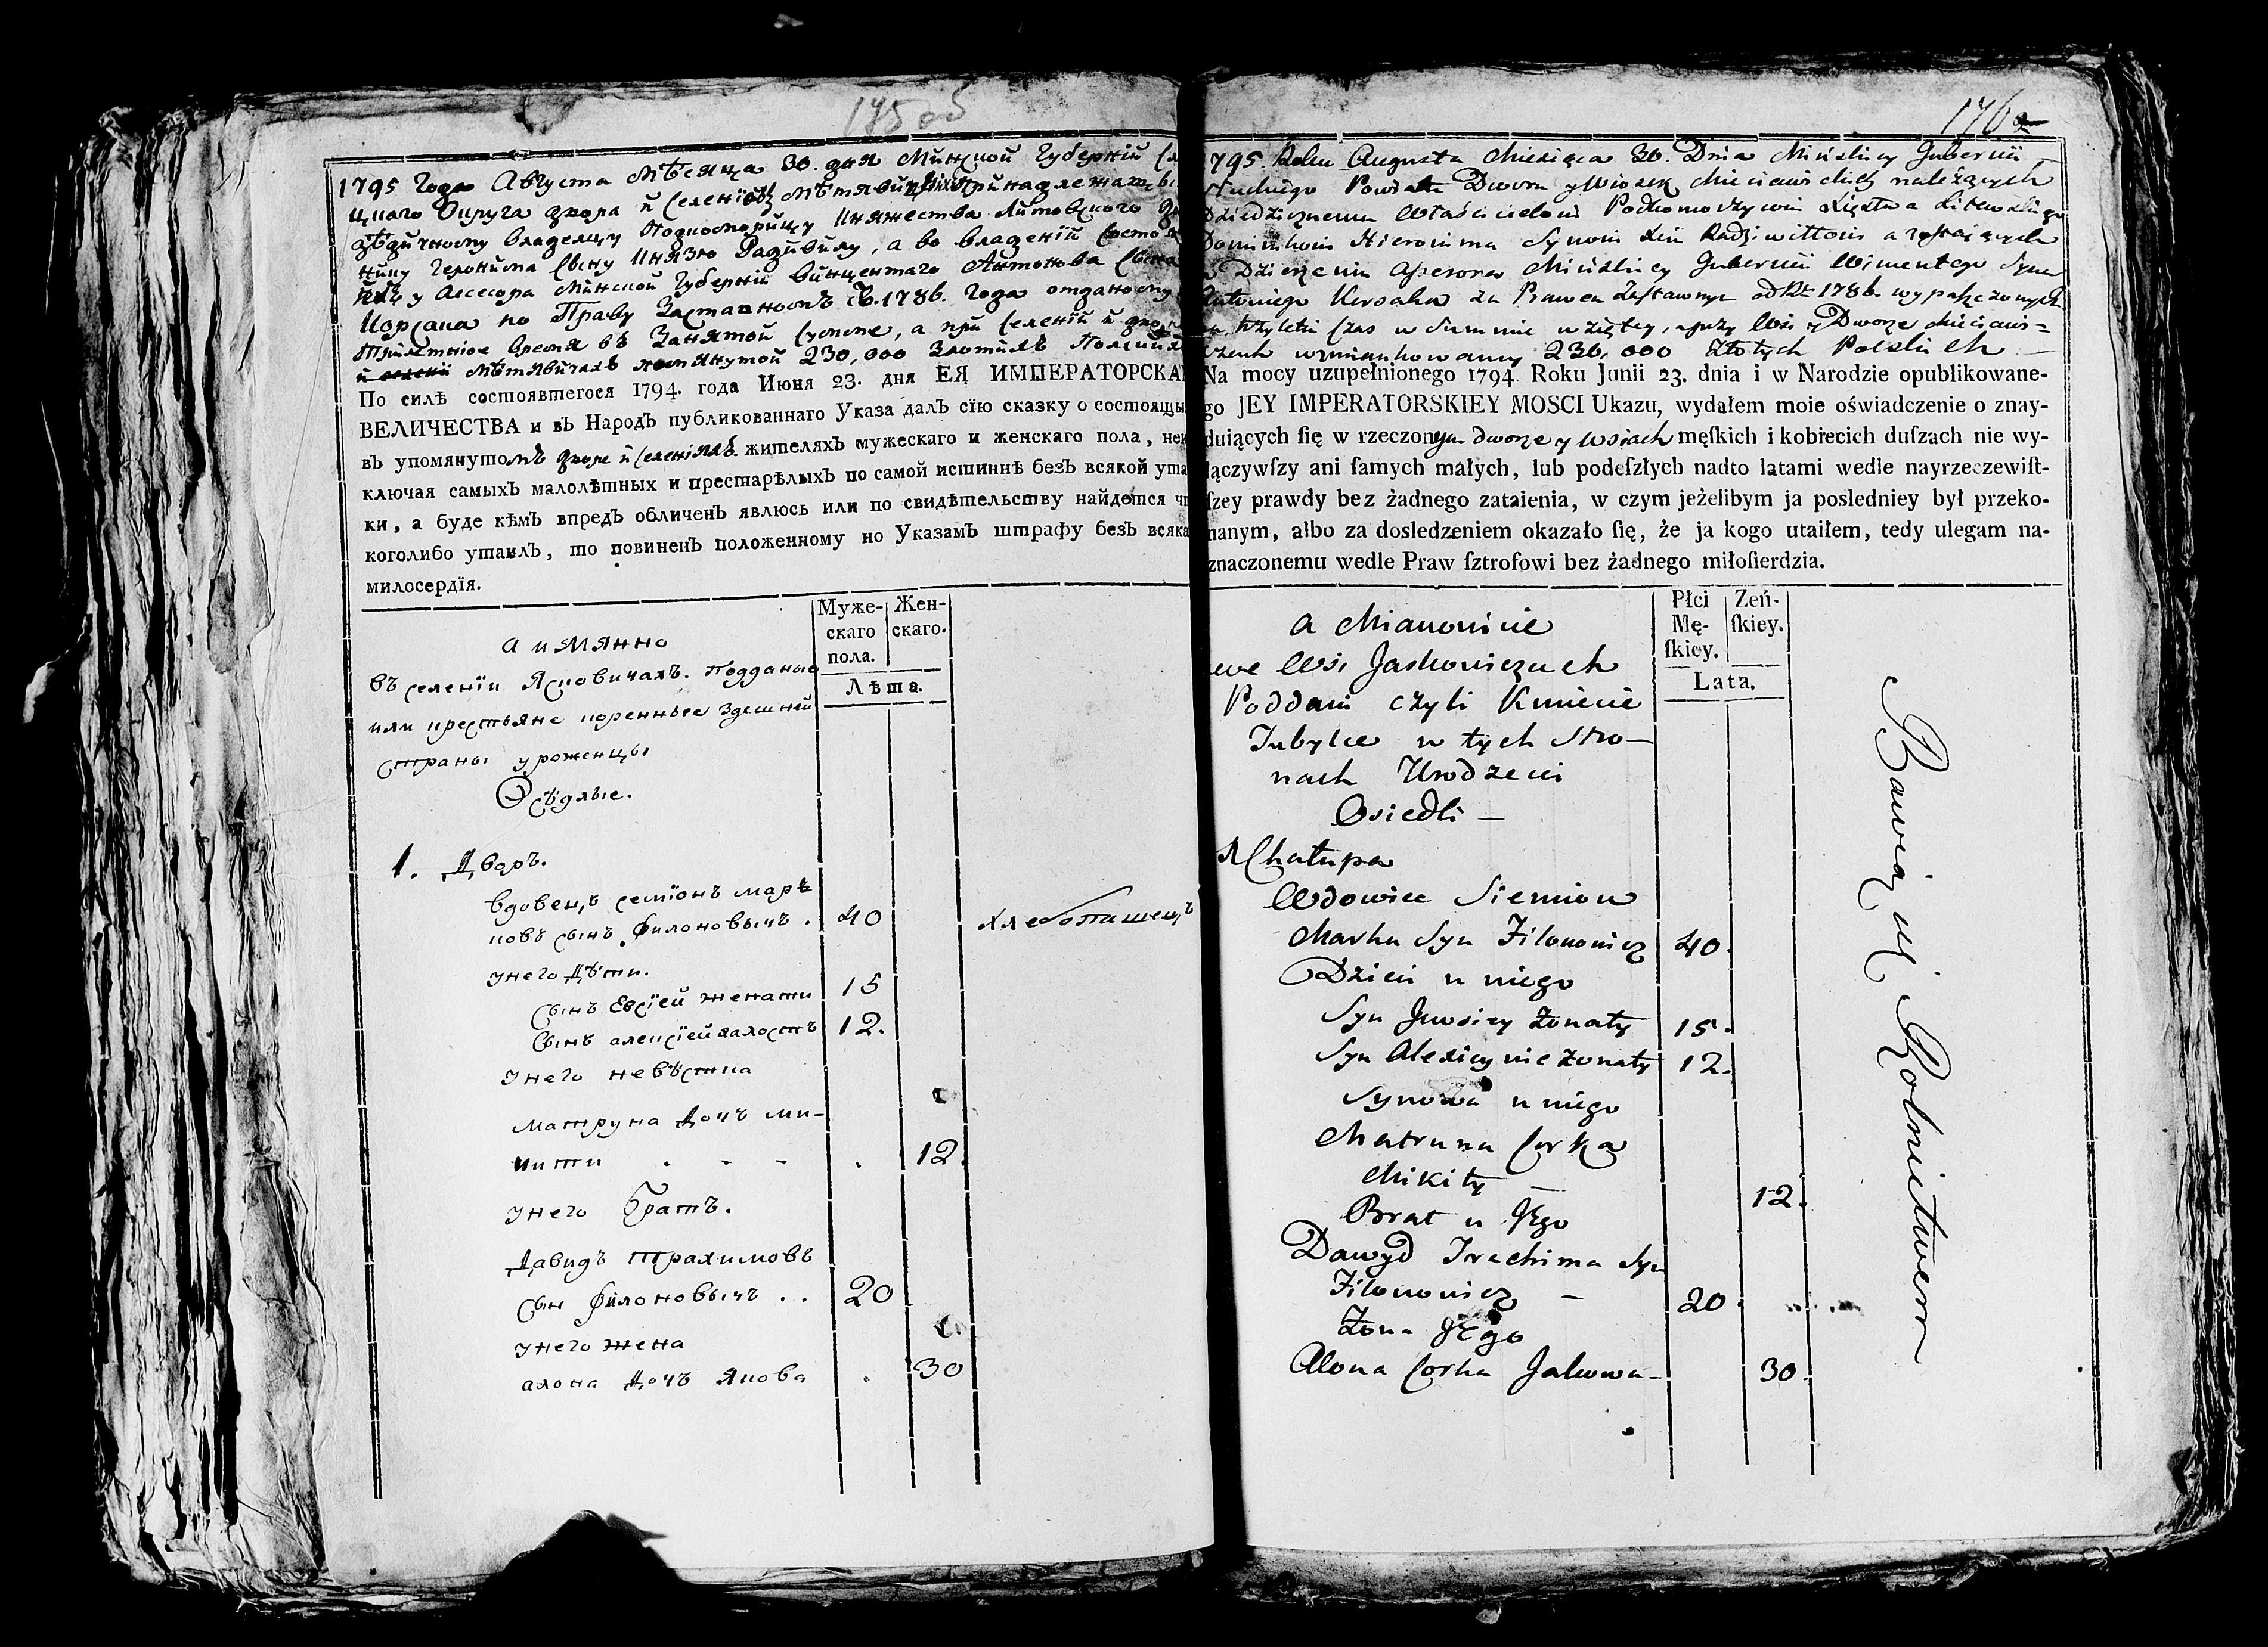 175 об
1795 Года Августа Мѣсяца 30. дня Минской Губернїй
цкаго Округа двора й селенїй Мѣтявичъ принадлежащ
дѣдичному владелцу Подкоморищу Княжества Литовского
нику Геронима сыну Князю Радзивилу, а во владенїй состоя
у Асесора Минской Губернїй Винцентаго Антонова сына
Корсака по Праву Заставномъ 1786. Года отданому
Трилетнїое время въ Занятой сумме, а при селенїй й дво
Мѣтявичахъ 230,000 Злотихъ Полскихъ
По силѣ состоявшегося 1794. года Июня 23. дня ЕЯ ИМПЕРАТОРСКА
ВЕЛИЧЕСТВА и въ Народъ публикованнаго Указа далъ сїю сказку о состоящы
въ упомянутомъ дворе й селенїяхъ жителяхъ мужескаго и женскаго пола, неи
ключая самыхъ малолѣтныхъ и престарѣлыхъ по самой истиннѣ безъ всякой ута
ки, а буде кѣмъ впредъ обличенъ явлюсь или по свидѣтельству найдется чт
коголибо утаилъ, то повиненъ положенному по Указамъ штрафу безъ всяка
милосердїя.
Муже-
скаго
пола.
Жен-
скаго.
Лѣта.
а имянно
въ селенїи Ясковичахъ. Подданые
или крестьяне коренные здешней
страны уроженцы
Осѣдлые.
1. Дворъ.
вдовецъ семїонъ марь
ковъ сынъ Филоновычъ . 40 хлебопашецъ
унего Дѣти.
Сынъ Евсїей женати 15
Сынъ алексїей халостъ 12.
унего невѣстка
матруна Дочъ ми-
кити . - - . 12.
унего братъ.
Давидъ трахимовъ
сын Филоновычъ . . 20
унего жена
алона Дочъ якова . 30
176
1795 Roku Augusta Miesiąca 30. Dnia Minskiey Gubernii
Słuckiego Powiatu Dworu y Wiosek należących
Dziedzicznemu Właścicielowi Podkomorzycowi Xięstwa Litewskiego
Dominikowi Hieronima Synowi Radziwiłłowi a zostaiących
w Dzierżeniu Asesora Minskiey Gubernii Wincentego Syna
Antoniego Korsaka za Prawem Zastawnym od Rku 1786. wypuszczonych
w trzyletni czas w Summie wziętey, a przy Wsi y Dworze
wzmiankowany 230,000 Złotych Polskich
Na mocy uzupełnionego 1794. Roku Junii 23. dnia i w Narodzie opublikowane-
go JEY IMPERATORSKIEY MOSCI Ukazu, wydałem moie oświadczenie o znay-
duiących ſię w rzeczonym dworze y wsiach męſkich i kobiecich duſzach nie wy-
łączywſzy ani ſamych małych, lub podeſzłych nadto latami wedle nayrzeczewiſt-
ſzey prawdy bez żadnego zataienia, w czym jeżelibym ja posledniey był przeko-
nanym, albo za dosledzeniem okazało ſię, że ja kogo utaiłem, tedy ulegam na-
znaczonemu wedle Praw ſztrofowi bez żadnego miłoſierdzia.
Płci
Mę-
ſkiey.
Zeń-
ſkiey.
Lata.
a Mianowicie
we Wsi Jaskowiczach
Poddani czyli Kmiecie
Tubylce w tych Stro-
nach Urodzeni
Osiedli —
1 Chałupa
Wdowiec Siemion
Marka Syn Filonowicz 40.
Dzieci u niego
Syn Jewsiey Żonaty 15.
Syn Alexiey nie żonaty 12.
Synowa u niego
Matruna Corka
Mikity — 12.
Brat u Jego
Dawyd Trachima Syn
Filonowicz — 20.
Żona Jego
Alona Corka Jakowa — 30.
Bawią się Rolnictwem